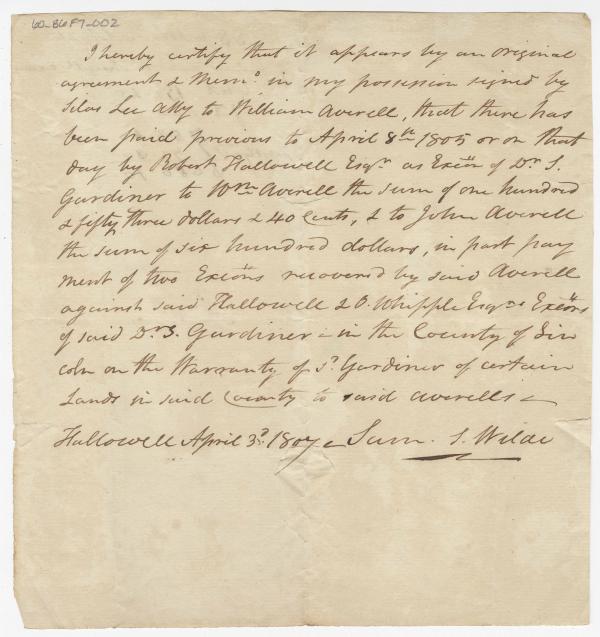 60-B6F7-002
I hereby certify that it appears by an original
agreement & Memo. in my possession signed by
Silas Lee Atty to William Averell, that there has
been paid previous to April 8th 1805 or on that
day by Robert Hallowell Esqr as Exeor of Dr S.
Gardiner to Wm Averell the sum of one hundred
& fifty three dollars & 40 Cents, & to John Averell
the sum of six hundred dollars, in part pay
ment of two Exeons recovered by said Averell
against said Hallowell & O. Whipple Esqrs Exeors
of said Dr S. Gardiner in the County of Lin
coln on the Warranty of sd Gardiner of certain
Lands in said County to said Averells
Hallowell April 3d 1807 Sam. S. Wilde